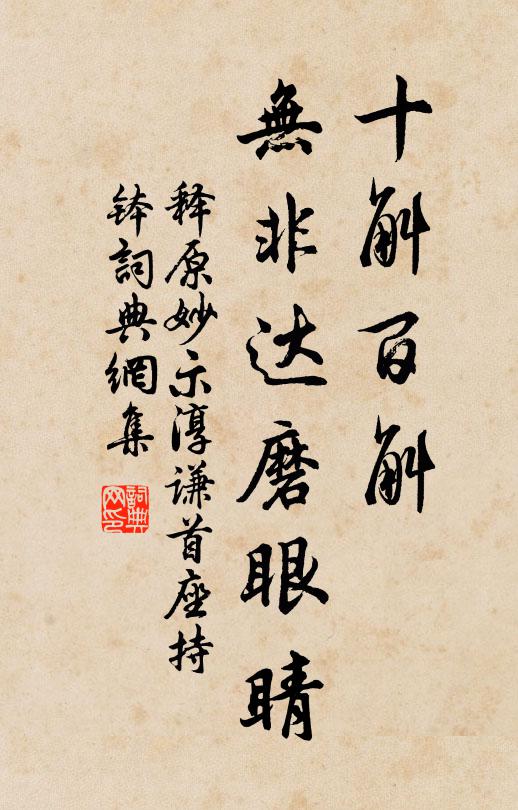 十斛百斛
無非达磨眼睛
释原妙示淳谦首座持
钵詞典網集
詞典
网印